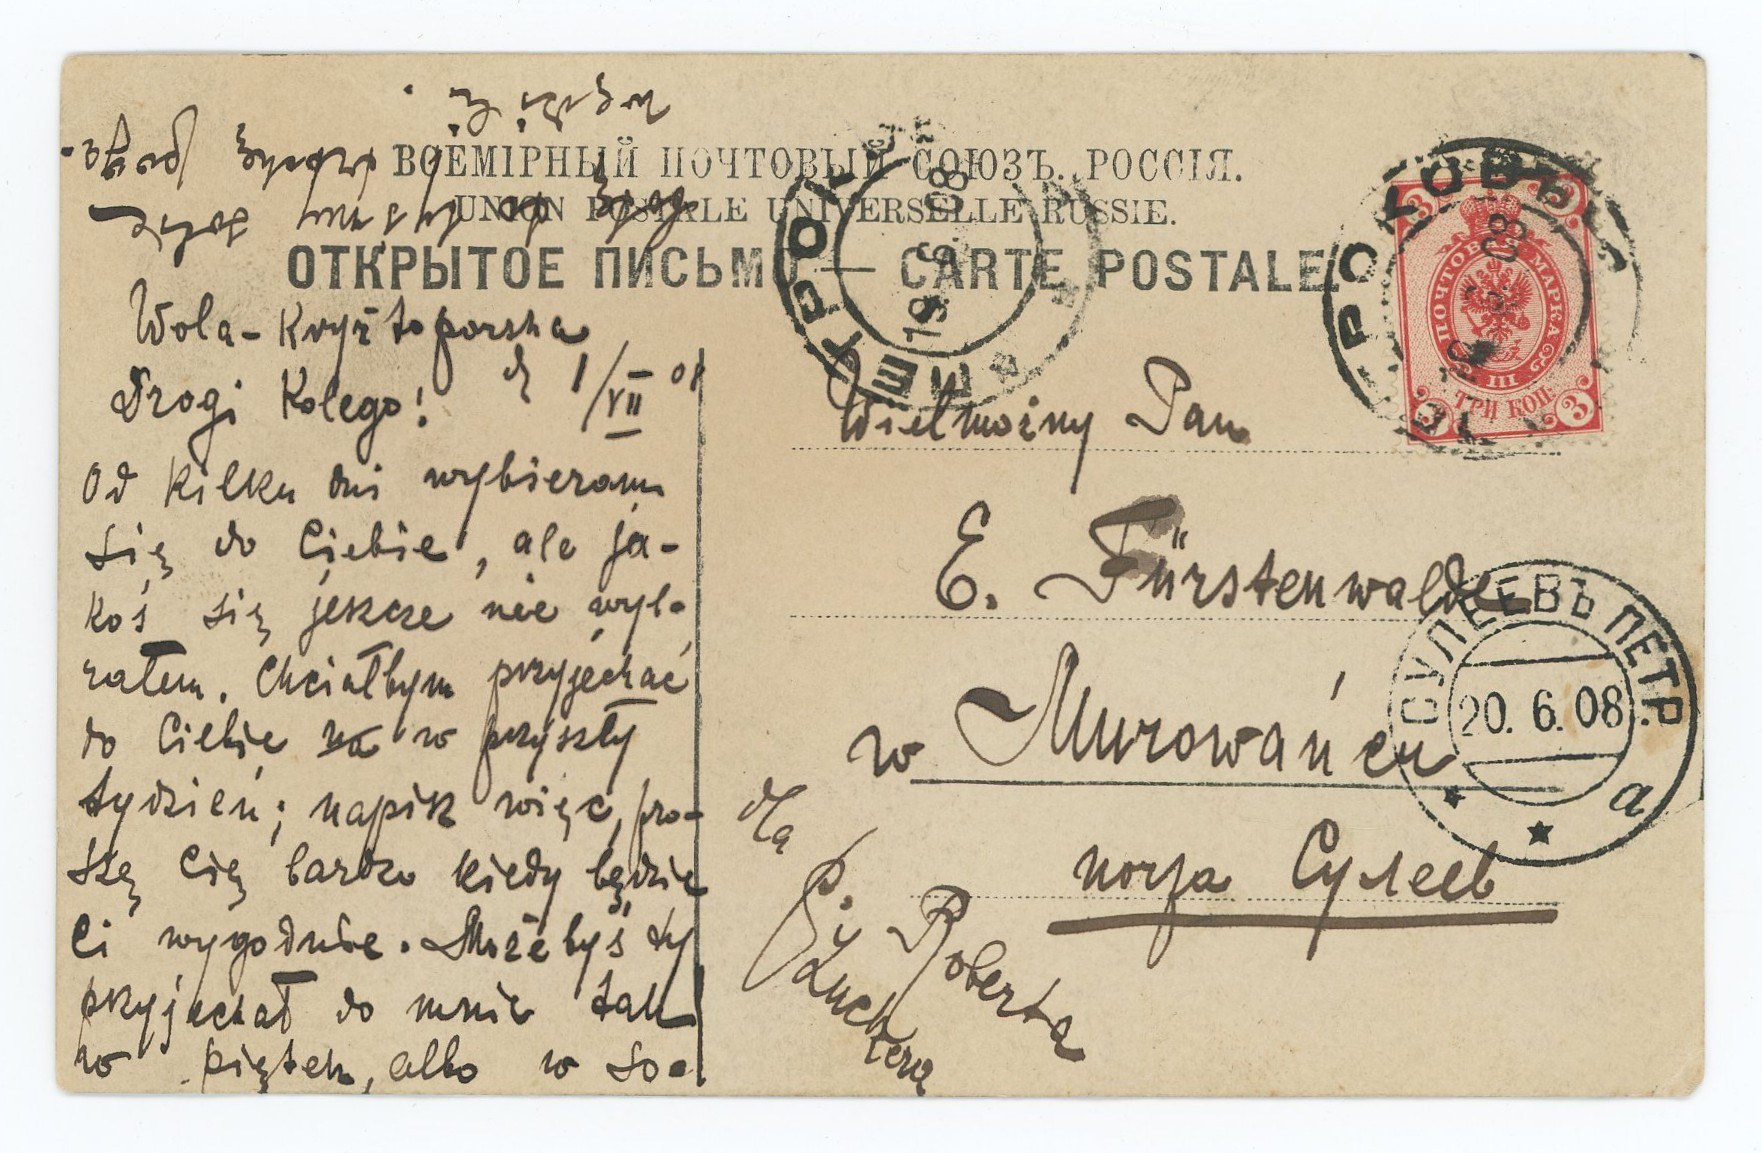 ВСЕМІРНЫЙ ПОЧТОВЫЙ СОЮЗЪ. РОССІЯ.
UNION POSTALE UNIVERSELLE RUSSIE.
ОТКРЫТОЕ ПИСЬМО — CARTE POSTALE.
Wola-Krzyżtoporska
d 1/VII 08
Drogi Kolego!
Od kilku dni wybieram
się do Ciebie, ale ja-
koś się jeszcze nie wyb-
rałem. Chciałbym przyjechać
do Ciebie w przyszły
tydzień; napisz więc, pro-
szę Cię bardzo kiedy będzie
Ci wygodnie. Możebyś ty
przyjechał do mnie tak
w piątek, albo w so-
Wielmożny Pan
E. Fürstenwalde
w Murowańcu
почта Сулеев
dla
P. Roberta
Luchtera
ПЕТРОКОВЪ
19.6.08
ПЕТРОКОВЪ
08
ПОЧТОВАЯ МАРКА
III
ТРИ КОП.
3 3 3 3
СУЛЕЕВЪ ПЕТР.
20.6.08
а